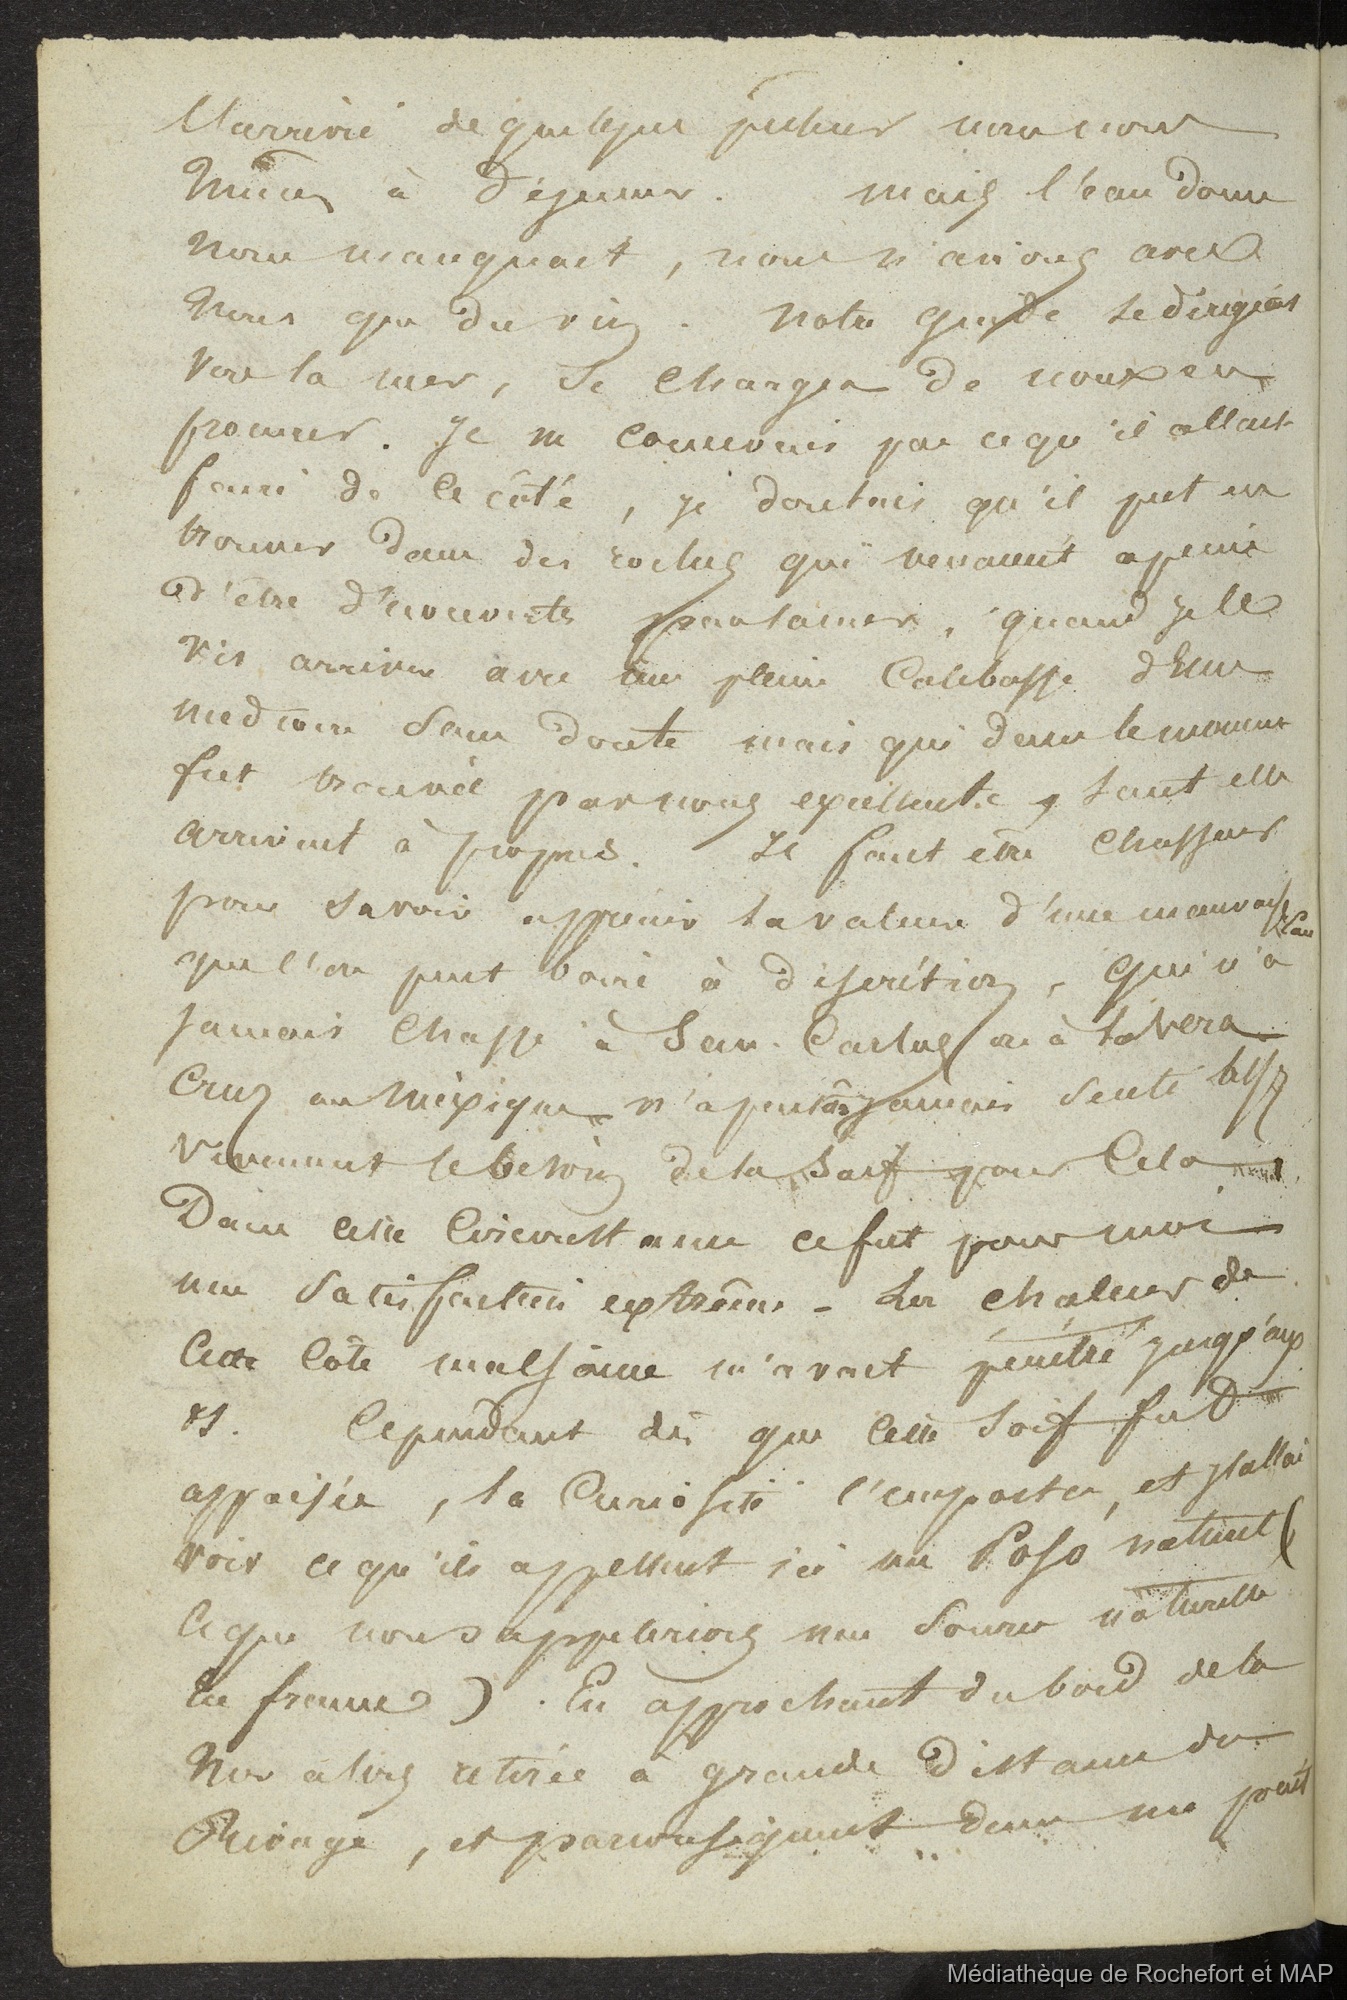 l'arrivé de quelque pecheur nous nous
mimes à dejeuner. mais l'eau douce
nous manquait, nous n'avions avec
nous que du vin. notre guide se dirigeant
vers la mer, se chargea de nous en
procurer. Je ne concevais pas ce qu'il allait
faire de ce côté, je doutais qu'il put en
trouver dans des roches qui venaient a peine
d'être découverts par la mer, quand je le
vis arriver avec une pleine Calebasse d'Eau
mediocre sans doute mais qui dans le moment
fut trouvée par nous excellente, tant elle
arrivait à propos. Il faut etre Chasseur
pour savoir apprecier la valeur d'une mauvaise Eau
que l'on peut boire à discrétion, Qui n'a
jamais Chassé à San. Carlos ou à la Vera
Cruz au Méxique n'a peutêtre jamais senti assez
vivement le besoin de la soif pour Cela.
Dans cette Circonstance ce fut pour moi
une satisfaction extrême - La chaleur de
Cette Côte malsaine m'avait penétré jusqu'aux
os. Cependant dès que Cette soif fut
appaisée, la Curiosité l'emporta, et j'allai
voir ce qu'ils appellent ici un Poso naturel (
Ce que nous appelerions une source naturelle
En france). En approchant du bord de la
Mer alors retirée à grande Distance du
Rivage, et dans un